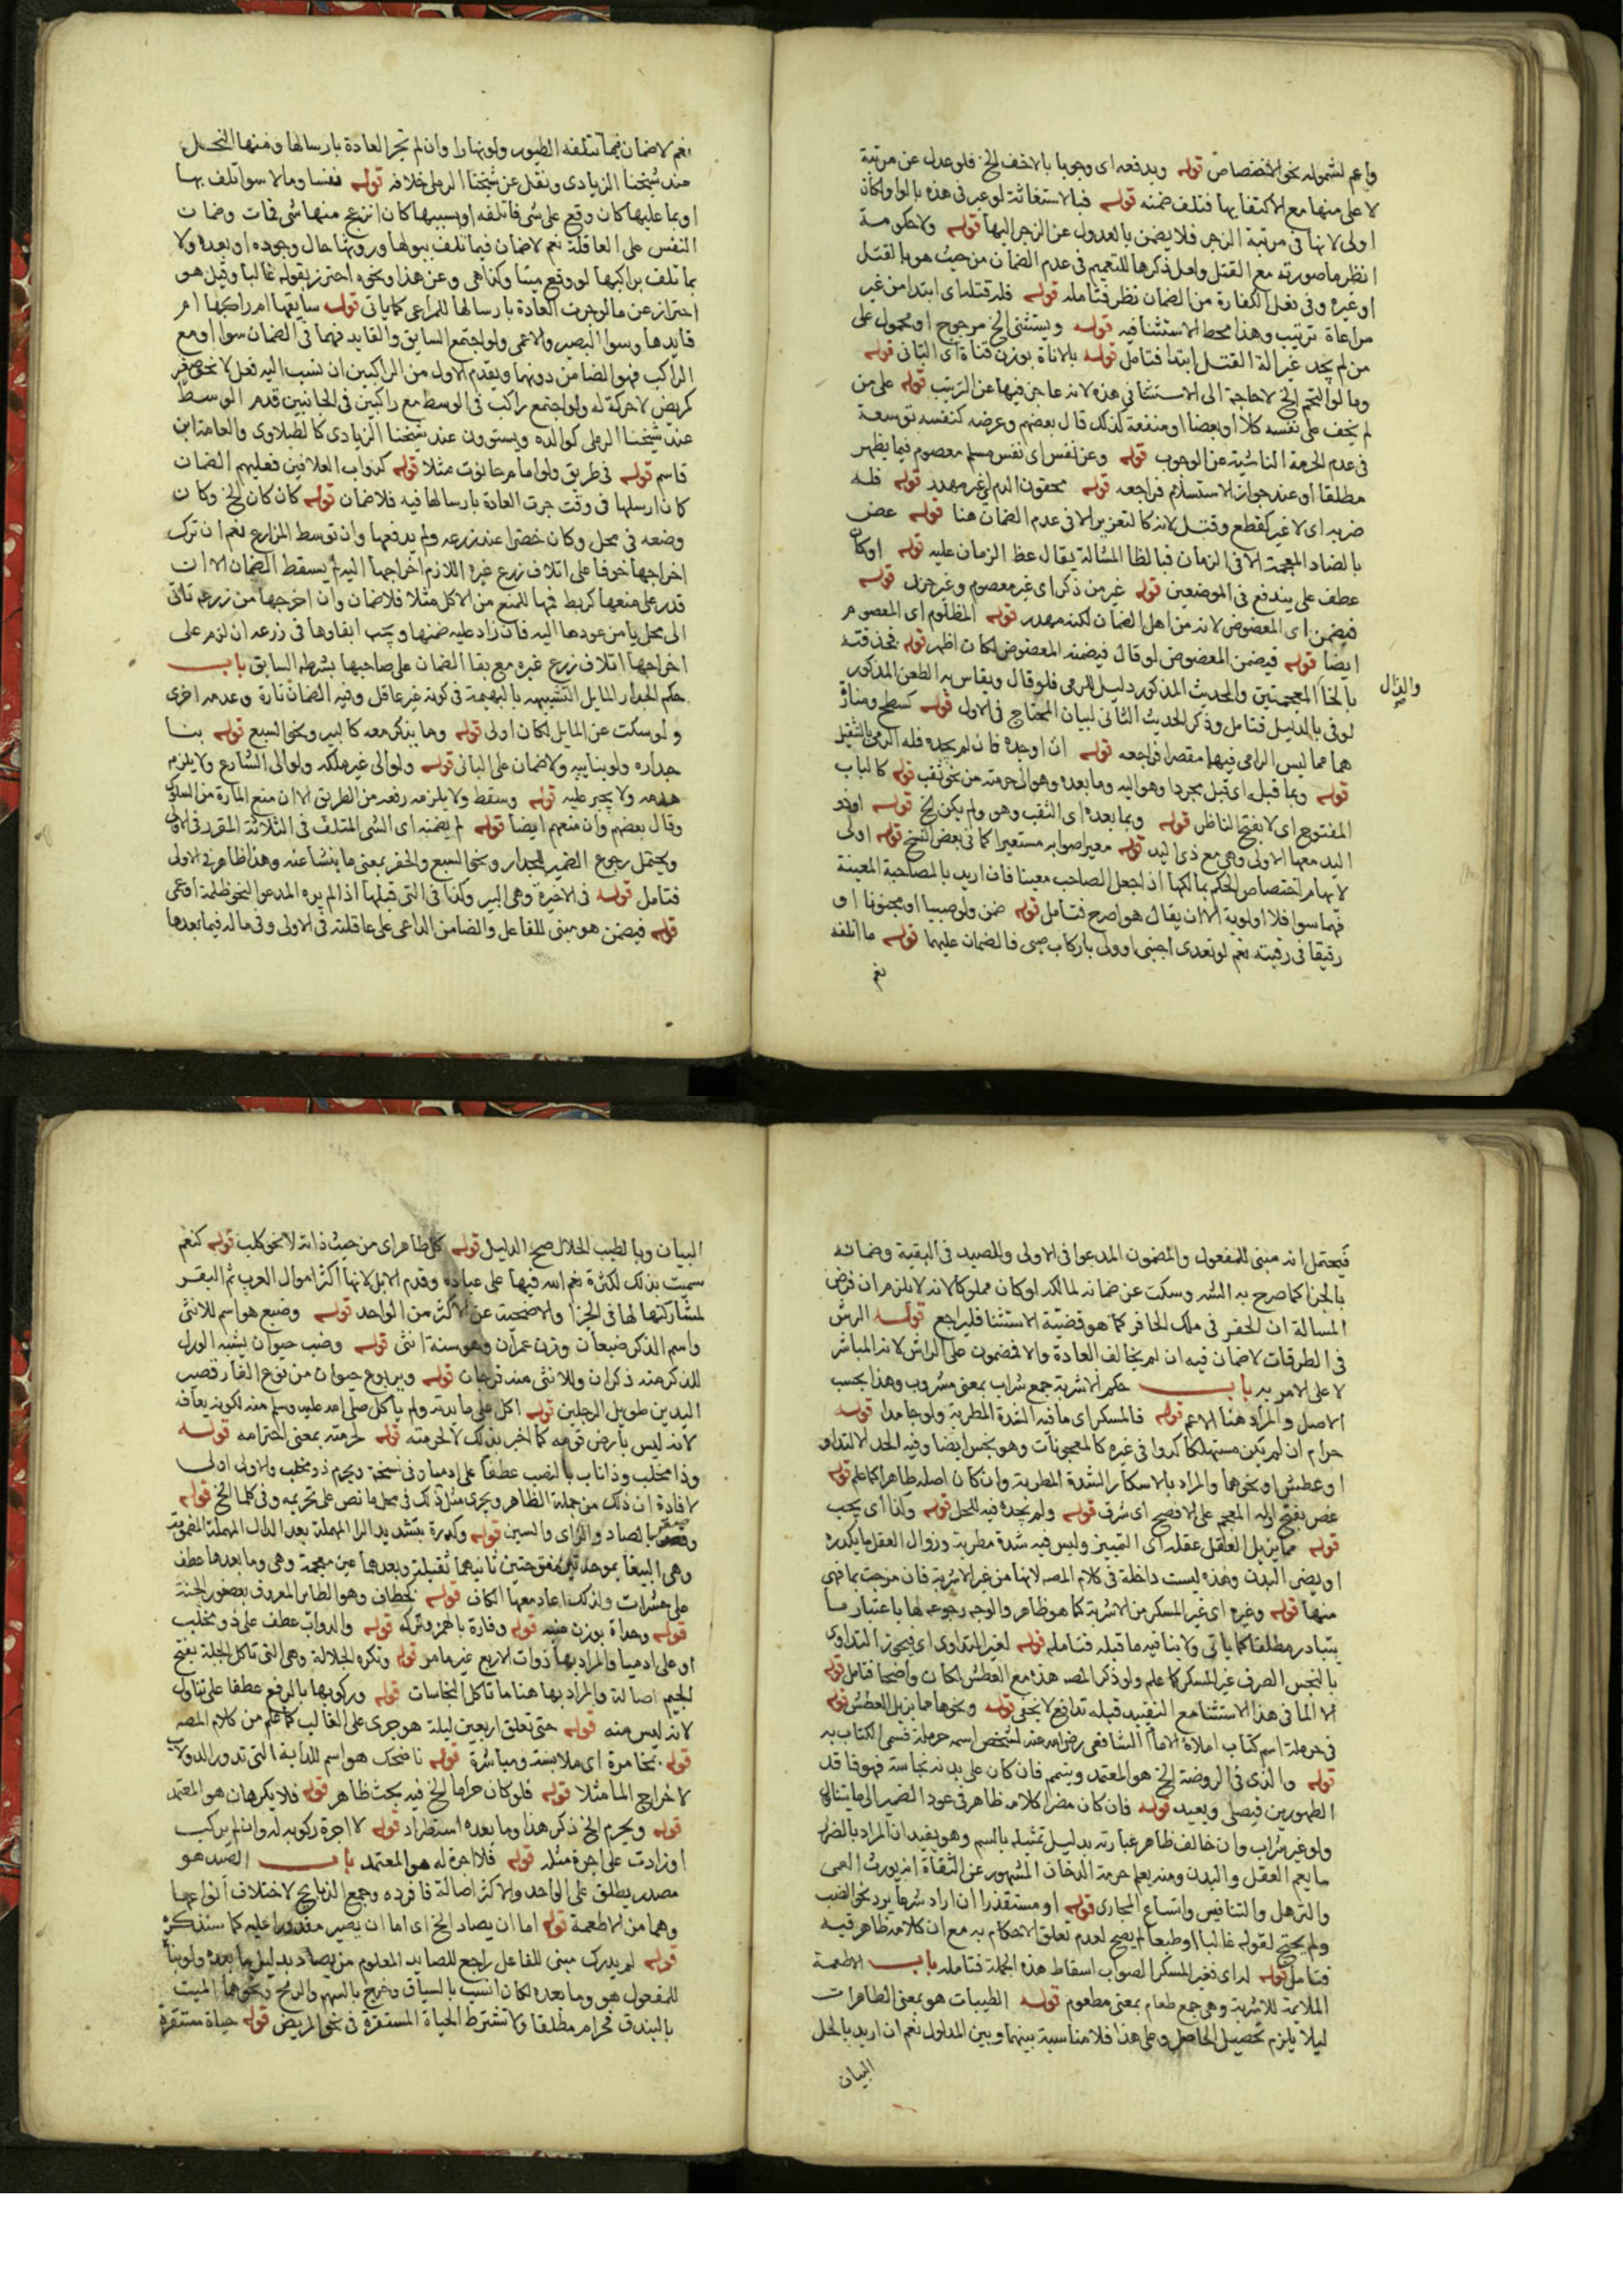 واعم لشموله نحو الاختصاص قوله ويدفعه اى وجوبا بالاخف الخ فلو عدل عن مرتبة
لا على منها مع الاكتفا بها فتلف ضمنه قوله فبالاستغاثة لو عبر فى هذه بالواو لكان
اولى لانها فى مرتبة الزجر فلا يضمن بالعدول عن الزجر اليها قوله ولا حكومة
انظر ما صورته مع القتل ولعل ذكرها للتعميم فى عدم الضمان من حيث هو بالقتل
او غيره وفى نفى الكفارة من الضمان نظر فتامله قوله فله قتله اى ابتدا من غير
مراعاة ترتيب وهذا محط الاستثنا فيه قوله ويستثنى الخ مرجوح او محمول على
من لم يجد غير الة القتل ابتدا فتامل قوله بالاناة بوزن قناة اى التانى قوله
وما لو التحم الخ لا حاجة الى الاستثنا فى هذه لانه عاجز فيها عن الترتيب قوله على من
لم يخف على نفسه كلا او بعضا او منفعة كذلك قال بعضهم وعرضه كنفسه توسعة
فى عدم الحرمة الناشية عن الوجوب قوله وعن نفس اى نفس مسلم معصوم فيما يظهر
مطلقا او عند جواز الاستسلام فراجعه قوله محقون الدم اى غير مهدر قوله فله
ضربه اى لا غير كقطع وقتل لانه كالتعزير الا فى عدم الضمان هنا قوله عض
بالضاد المعجمة الا فى الزمان فبالظا المشالة يقال عظ الزمان عليه قوله اوكان
عطف على يندفع فى الموضعين قوله غير من ذكر اى غير معصوم وغير حربى قوله
فيضمن اى المعضوض لانه من اهل الضمان لكنه مهدر قوله المظلوم اى المعصوم
ايضا قوله فيضمن المعضوض لو قال فيضمنه المعضوض لكان اظهر قوله فخذفته
والذال
صح
بالخا المعجمتين والحديث المذكور دليل للرمى فلو قال ويقاس به الطعن المذكور
لوفى بالدليل فتامل وذكر الحديث الثانى لبيان المحتاج فى الاول قوله كسطح ومنارة
هما مما ليس الرامى فيهما مقصرا فراجعه قوله ان اوجده فان لم يجده فله الرمى بالثقيل
قوله وبما قبله اى قبل مجردا وهو اليه وما بعده وهو الى حرمته من نحو ثقب قوله كالباب
المفتوح اى لا بفتح الناظر قوله وبما بعده اى الثقب وهو ولم يكن الخ قوله او ذو
اليد معها الاولى وهى مع ذى اليد قوله معير صوابه مستعير كما فى بعض النسخ قوله اولى
لايهامه اختصاص الحكم بمالكها اذ جعل الصاحب معينا فان اريد بالمصاحبة المعينة
فهما سوا فلا اولوية الا ان يقال هو اصرح فتامل قوله ضمن ولو صبيا او مجنونا او
رقيقا فى رقبته نعم لو تعدى اجنبى او ولى باركاب صبى فالضمان عليهما قوله ما اتلفه
نعم
نعم لا ضمان فيما تتلفه الطيور ولو نهارا وان لم تجر العادة بارسالها ومنها النحل
عند شيخنا الزيادى ونقل عن شيخنا الرملى خلافه قوله نفسا ومالا سوا تلف بها
او بما عليها كان وقع على شى فاتلفه او بسببها كان انزعج منها شى فمات وضمان
النفس على العاقلة نعم لا ضمان فيما تلف ببولها وروثها حال وجوده او بعده ولا
بما تلف براكبها لو وقع ميتا وكذا هى وعن هذا ونحوه احترز بقوله غالبا وقيل هو
احتراز عن ما لو جرت العادة بارسالها للمراعى كما ياتى قوله سايقها ام راكبها ام
قايدها وسوا البصير والاعمى ولو اجتمع السايق والقايد فهما فى الضمان سوا او مع
الراكب فهو الضامن دونهما ويقدم الاول من الراكبين ان نسب اليه فعل لا نحو صغير
كمريض لا حركة له ولو اجتمع راكب فى الوسط مع راكبين فى الجانبين قدم الوسط
عند شيخنا الرملى كوالده ويستوون عند شيخنا الزيادى كالطبلاوى والعلامة ابن
قاسم قوله فى طريق ولو امام حانوت مثلا قوله كدواب العلافين فعليهم الضمان
كان ارسلها فى وقت جرت العادة بارسالها فيه فلا ضمان قوله كان كان الخ وكان
وضعه فى محل وكان حضرا عند زرعه ولم يدفعها وان توسط المزارع نعم ان ترك
اخراجها خوفا على اتلاف زرع غيره اللازم اخراجها اليه لم يسقط الضمان الا ان
قدر على منعها كربط فمها للمنع من الاكل مثلا فلا ضمان وان اخرجها من زرعه تانى
الى محل يامن عودها اليه فان زاد عليه ضمنها ويجب ابقاوها فى زرعه ان لزم على
اخراجها اتلاف زرع غيره مع بقا الضمان على صاحبها بشرطه السابق باب
حكم الجدار المايل التشبيهه بالبهيمة فى كونه غير عاقل وفيه الضمان تارة وعدمه اخرى
ولو سكت عن المايل لكان اولى قوله وما يذكر معه كالبير ونحو السبع قوله بنا
جداره ولو بنايبه ولا ضمان على البانى قوله ولو الى غير ملكه ولو الى الشارع ولا يلزم
هدمه ولا يجبر عليه قوله وسقط ولا يلزمه رفعه من الطريق الا ان منع المارة من السلوك
وقال بعضهم وان منعهم ايضا قوله لم يضمنه اى الشى المتلف فى الثلاثة المقرر فى الاولى
ويحتمل رجوع الضمير للجدار ونحو السبع والحفر بمعنى ما ينشا عنه وهذا ظاهر فى الاولى
فتامل قوله فى الاخيرة وهى البير وكذا فى التى قبلها اذ الم يره المدعو لنحو ظلمة او عمى
قوله فيضمن هو مبنى للفاعل والضامن الداعى على عاقلته فى الاولى وفى ماله فيما بعدها
فيحتمل انه مبنى للمفعول والمضمون المدعوا فى الاولى والصيد فى البقية وضمانه
بالجزا كما صرح به الش وسكت عن ضمانه لمالكه لو كان مملوكا لانه لا يلزم ان فرض
المسالة ان الحفر فى ملك الحافر كما هو قضية الاستثنا فليراجع قوله الرش
فى الطرقات لا ضمان فيه ان لم يخالف العادة والا فمضمون على الراش لانه المباشر
لا على الامر به باب حكم الاشربة جمع شراب بمعنى مشروب وهذا بحسب
الاصل والمراد هنا الاعم قوله فالمسكر اى ما فيه الشدة المطربة ولو جامدا قوله
حرام ان لم يكن مستهلكا كدوا فى غيره كالمعجونات وهو نجس ايضا وفيه الحد الا لتداو
او عطش او نحوهما والمراد بالاسكار الشدة المطربة وان كان اصله طاهرا كما علم قوله
غص بفتح اوله المعجم على الافصح اى شرق قوله ولم نجده فيه للحل قوله وكذا اى يجب
قوله مما يزيل العقل عقله اى التمييز وليس فيه شدة مطربة وزوال العقل ما يكدره
او يضر البدن وهذه ليست داخلة فى كلام المصه لانها من غير الاشربة فان مزجت بما فهى
منها قوله وغيره اى غير المسكر من الاشربة كما هو ظاهر والوجه رجوعه لها باعتبار ما
يتبادر مطلقا كما ياتى ولا ينافيه ما قبله فتامله قوله لغير التداوى اى فيجوز التداوى
بالنجس الصرف غير المسكر كما علم ولو ذكر المصه هذه مع العطش لكان واضحا فتامل قوله
الا الما فى هذا الاستثنا مع التقييد قبله تدافع لا يخفى قوله ونحوها مما يزيل العطش قوله
فى حرملة اسم كتاب املاه الامام الشافعى رضى الله عنه لشخص اسمه حرملة فسمى الكتاب به
قوله والذى فى الروضة الخ هو المعتمد ويتيمم فان كان على بدنه نجاسة فهو فاقد
الطهورين فيصلى ويعيد قوله فان كان مضرا كلامه ظاهر فى عود الضمير الى ما يتناوله
ولو غير شراب وان خالف ظاهر عبارته بدليل تمثيله بالسم وهو يفيد ان المراد بالضرر
ما يعم العقل والبدن ومنه يعلم حرمة الدخان المشهور عن الثقاة انه يورث العمى
والترهل والتنافيس واتساع المجارى قوله او مستقذرا ان اراد شرعا يرد نحو الضب
ولم يحتج لقوله غالبا او طبعا لم يصح لعدم تعلق الاحكام به مع ان كلامه ظاهر فيه
فتامل قوله له اى لغير المسكر الصواب اسقاط هذه الجملة فتامله باب الاطعمة
الملايمة للاشربة وهى جمع طعام بمعنى مطعوم قوله الطيبات هو بمعنى الطاهرات
ليلا يلزم تحصيل الحاصل وعلى هذا فلا مناسبة بينها وبين المدلول نعم ان اريد بالحل
البيان
البيان وبالطيب الحلال صح الدليل قوله كل طاهر اى من حيث ذاته لا نحو كلب قوله كنعم
سميت بذلك لكثرة نعم الله فيها على عباده وقدم الابل لانها اكثر اموال العرب ثم البقر
لمشاركتها لها فى الجزا والاضحية عن الاكثر من الواحد قوله وضبع هو اسم للانثى
واسم الذكر ضبعان وزن عمران وهو سنة انثى قوله وضب حيوان يشبه الورل
للذكر منه ذكران وللانثى منه فرجان قوله ويربوع حيوان من نوع الفار قصير
اليدين طويل الرجلين قوله اكل على مايدته ولم ياكل صلى الله عليه وسلم منه لكونه يعافه
لانه ليس بارض قومه كما اخبر بذلك لا لحرمته قوله لحرمته بمعنى احترامه قوله
وذا مخلب وذا ناب بالنصب عطفا على ادميا وفى نسخة ويحرم ذو مخلب والاولى اولى
لافادة ان ذلك من جملة الظاهر ويجرى مثل ذلك فى محل ما نص على تحريمه وفى كلما الخ قوله
وصقر بالصاد والزاى والسين قوله وكدرة بتشديد الرا المهملة بعد الدال المهملة المضمومة
وهى الببغا بموحدتين مفتوحتين ثانيهما ثقيلة وبعدهما غين معجمة وهى وما بعدها عطف
على حشرات ولذلك اعاد معها الكاف قوله كخطاف وهو الطاير المعروف بعصفور الجنة
قوله وحداة بوزن عنبه قوله وفارة بالهمز وتركه قوله والدواب عطف على ذو مخلب
او على ادميا والمراد بها ذوات الاربع غير ما مر قوله وتكره الجلالة وهى التى تاكل الجلة بفتح
الجيم اصالة والمراد بها هنا ما تاكل النجاسات قوله وركوبها بالرفع عطفا على تناول
لانه ليس منه قوله حتى تعلق اربعين ليلة هو جرى على الغالب كما علم من كلام المصه
قوله بمخامرة اى ملابسة ومباشرة قوله ناضحك هو اسم للدابة التى تدور الدولاب
لاخراج الما مثلا قوله فلو كان حراما الخ فيه بحث ظاهر قوله فلا يكرهان هو المعتمد
قوله ويحرم الخ ذكر هذا وما بعده استطراد قوله لا اجرة ركوبه له وان لم يركب
او زادت على اجرة مثله قوله فلا اجرة له هو المعتمد باب الصيد هو
مصدر يطلق على الواحد والاكثر اصالة فافرده وجمع الذبايح لاختلاف انواعها
وهما من الاطعمة قوله اما ان يصاد الخ اى اما ان يصير مقدورا عليه كما سنذكره
قوله لم يدرك مبنى للفاعل راجع للصايد المعلوم من يصاد بدليل ما بعده ولو بناه
للمفعول هو وما بعده لكان انسب بالسياق وخرج بالسهم والرمح ونحوهما الميت
بالبندق فحرام مطلقا ولا تشترط الحياة المستقرة فى نحو المريض قوله حياة مستقرة